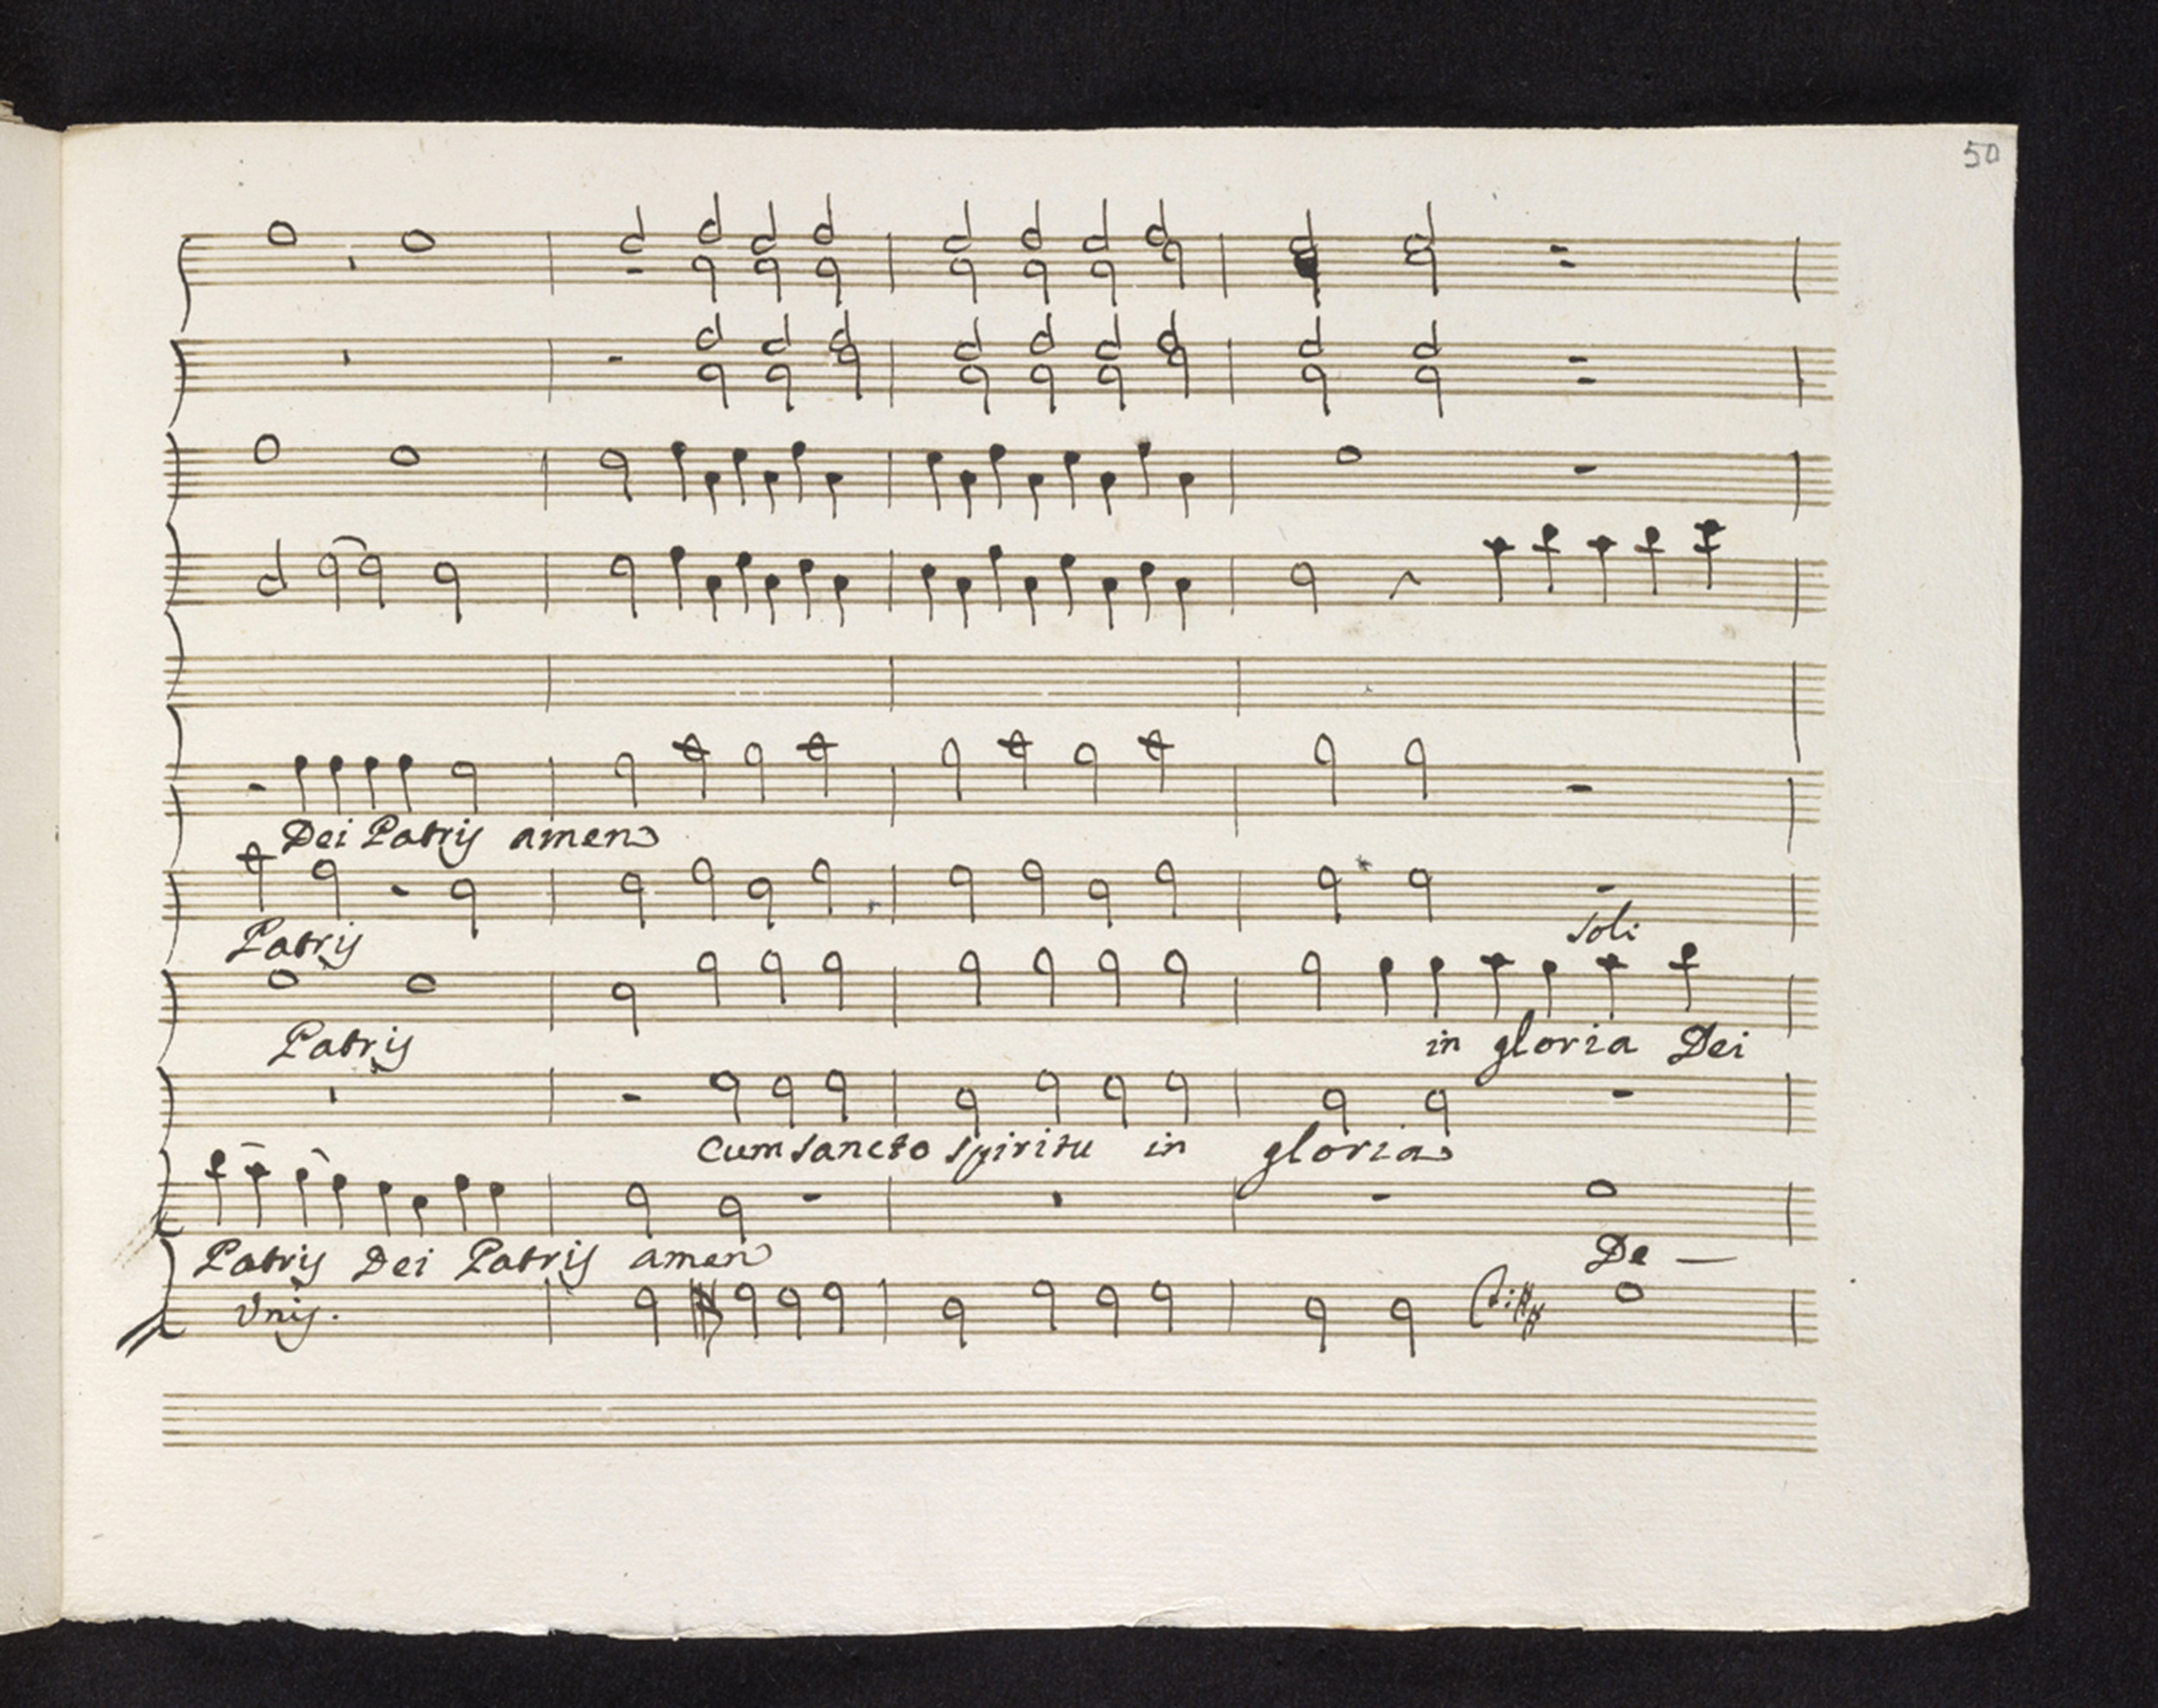 50
Dei Patris amen
Patris
soli
Patris in gloria Dei
Cum sancto spiritu in gloria
Patris Dei Patris amen De —
Unis.